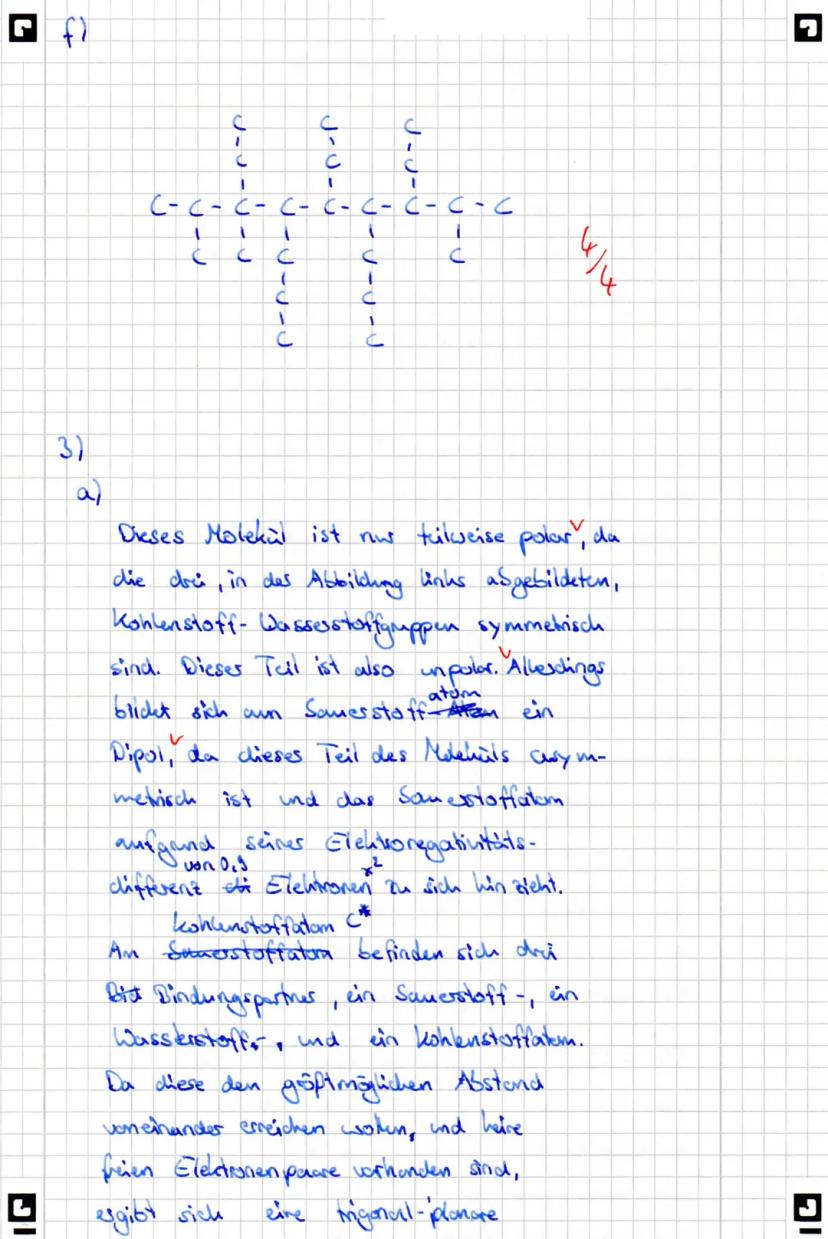 f)
C C C
C C C
C - C - C - C - C - C - C - C - C
C C C C C
C C
C C
4/4
3)
a)
Dieses Molekül ist nur teilweise polar, da
die drei, in der Abbildung links abgebildeten,
Kohlenstoff-Wasserstoffgruppen symmetrisch
sind. Dieser Teil ist also unpolar. Allerdings
atom
bildet sich am Sauerstoff-Atom ein
Dipol, da dieser Teil des Moleküls asym-
metrisch ist und das Sauerstoffatom
aufgrund seiner Elektronegativitäts-
von 0,9 *2
differenz di Elektronen zu sich hin zieht.
Kohlenstoffatom C*
Am Sauerstoffatom befinden sich drei
Bindungspartner, ein Sauerstoff-, ein
Wasserstoff-, und ein Kohlenstoffatom.
Da diese den größtmöglichen Abstand
voneinander erreichen wollen, und keine
freien Elektronenpaare vorhanden sind,
ergibt sich eine trigonal-planare